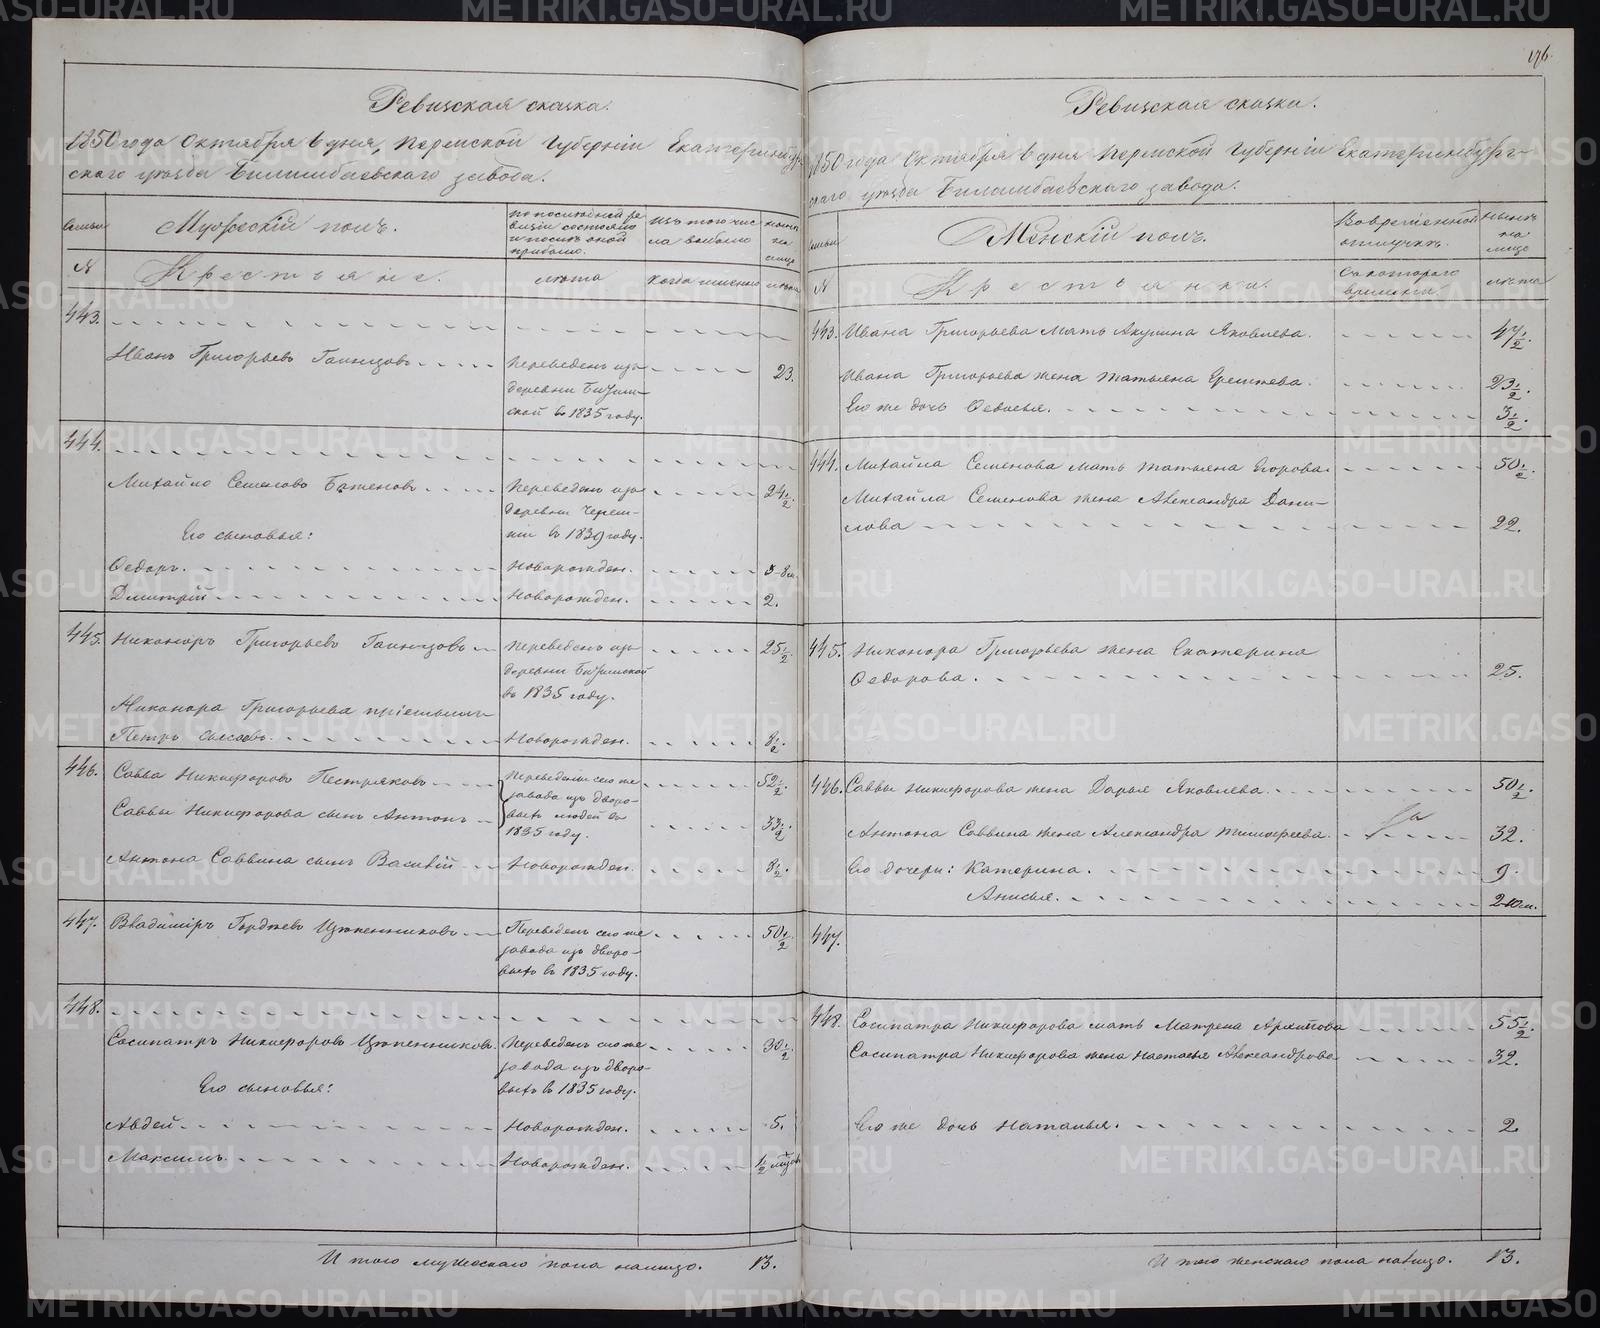 Ревизская сказка.
1850 года Октября 6 дня, Пермской Губерніи Екатеринбур-
скаго уѣзда Билимбаевскаго завода.
семьи
Мужескій полъ.
по послѣдней ре-
визіи состояло
и послѣ оной
прибыло.
Изъ того чис
ла выбыло
нынѣ
на
лицо
№
Крестьяне.
лѣта
когда именно
лѣта
443.
Иванъ Григорьевъ
Переведенъ изъ
деревни
ской въ 1835 году.
23.
444.
Михайло Семеновъ Баженовъ
Переведенъ изъ
деревни Череш-
ніи въ 1839 году.
24 1/2.
Его сыновья:
Ѳедоръ.
Новорожден.
3-8м.
Дмитрій
Новорожден.
2.
445.
Никаноръ Григорьевъ
Переведенъ изъ
деревни
въ 1835 году.
25 1/2.
Никанора Григорьева пріемышъ
Петръ
Новорожден.
8 1/2.
446.
Савва Никифоровъ Пестряковъ
Переведены сего же
завода изъ дворо-
выхъ людей въ
1835 году.
52 1/2.
Саввы Никифорова сынъ Антонъ
33 1/2.
Антона Саввина сынъ Василій
Новорожден.
8 1/2.
447.
Владиміръ Гордѣевъ Цѣпенниковъ
Переведенъ сего же
завода изъ дворо-
выхъ въ 1835 году.
50 1/2.
448.
Сосипатръ Никифоровъ Цѣпенниковъ.
Переведенъ сего же
завода изъ дворо-
выхъ въ 1835 году.
30 1/2.
Его сыновья:
Авдей
Новорожден.
5.
Максимъ
Новорожден.
1/2 мѣсяц.
И того мужескаго пола налицо. 13.
176.
Ревизская сказка.
1850 года Октября 6 дня Пермской Губерніи Екатеринбург-
скаго уѣзда Билимбаевскаго завода.
семьи
Женскій полъ.
Во временной
отлучкѣ.
нынѣ
на
лицо
№
Крестьянки.
Съ котораго
времени.
лѣта
443.
Ивана Григорьева мать Акулина Яковлева.
47 1/2.
Ивана Григорьева жена Татьяна Еремѣева.
23 1/2.
Его же дочь Ѳедосья.
3 1/2.
444.
Михайла Семенова мать Татьяна Егорова.
50 1/2.
Михайла Семенова жена Александра Дани-
лова
22.
445.
Никанора Григорьева жена Екатерина
Ѳедорова.
25.
446.
Саввы Никифорова жена Дарья Яковлева.
50 1/2.
Антона Саввина жена Александра Тимофеева.
32.
Его дочери: Катерина.
9.
Анисья.
2-10м.
447.
448.
Сосипатра Никифорова мать Матрена Архипова
55 1/2.
Сосипатра Никифорова жена Настасья Александрова
32.
Его же дочь Наталья.
2
И того женскаго пола налицо. 13.
METRIKI.GASO-URAL.RU